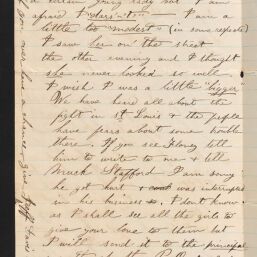 a certain young lady but I am
afraid I "dars'n't". I am a
little too "modest" (in some respects)
I saw her on the street
the other evening and I thought
she never looked so well
I wish I was a little "bigger"
We have here all about the
fight in St Louis & the people
have fears about some trouble
there. If you see tell
him to write to me & tell
Stafford I am sorry
he got hurt & was interrupted
in his business. I don't know
as I shall see all the girls to
give your love to them but
I will send it to the principal
you ever have a chance give